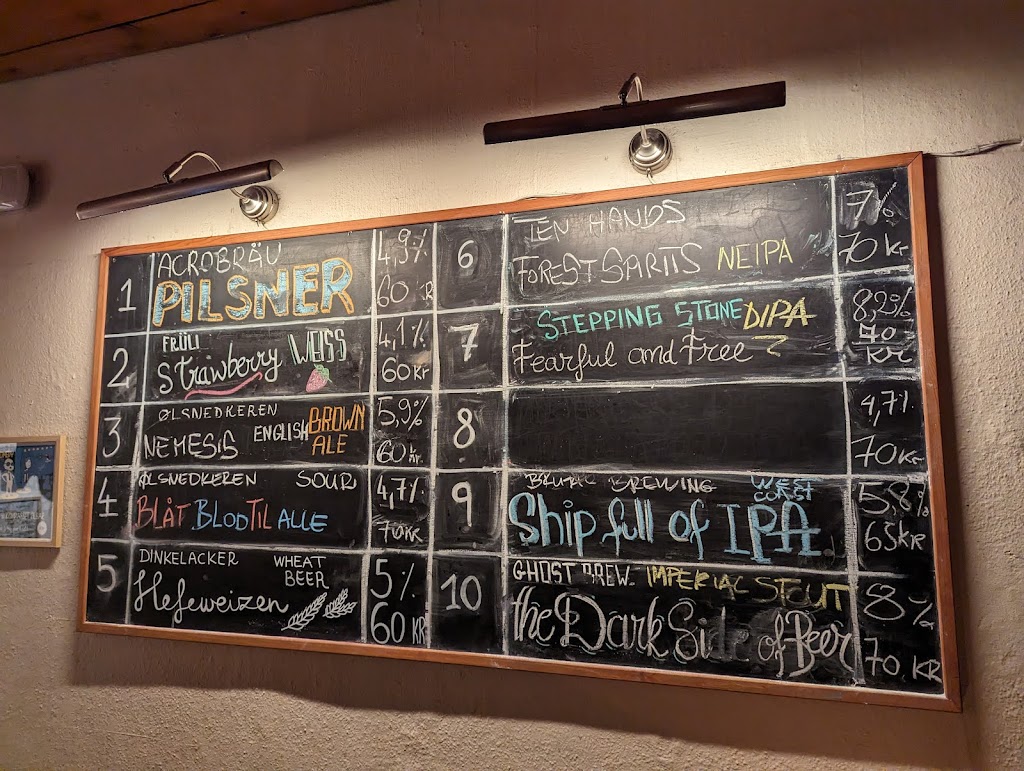 1
ACROBRÄU
PILSNER
4,9%
60 KR
2
FRÜLI
Strawberry WEISS
4,1%
60 Kr
3
ØLSNEDKEREN
NEMESIS ENGLISH BROWN ALE
5,9%
60 kr.
4
ØLSNEDKEREN SOUR
BLÅT BLOD TIL ALLE
4,7%
70 kr
5
DINKELACKER WHEAT BEER
Hefeweizen
5%
60 KR
6
TEN HANDS
FOREST SARTIS NEIPA
7%
70 kr
7
STEPPING STONE DIPA
Fearful and Free
8,2%
70
KR
8
4,7%
70 kr
9
BRUTAL BREWING WEST COAST
Ship full of IPA
5,8%
65 KR
10
GHOST BREW. IMPERIAL STOUT
the Dark Side of Beer
8%
70 KR